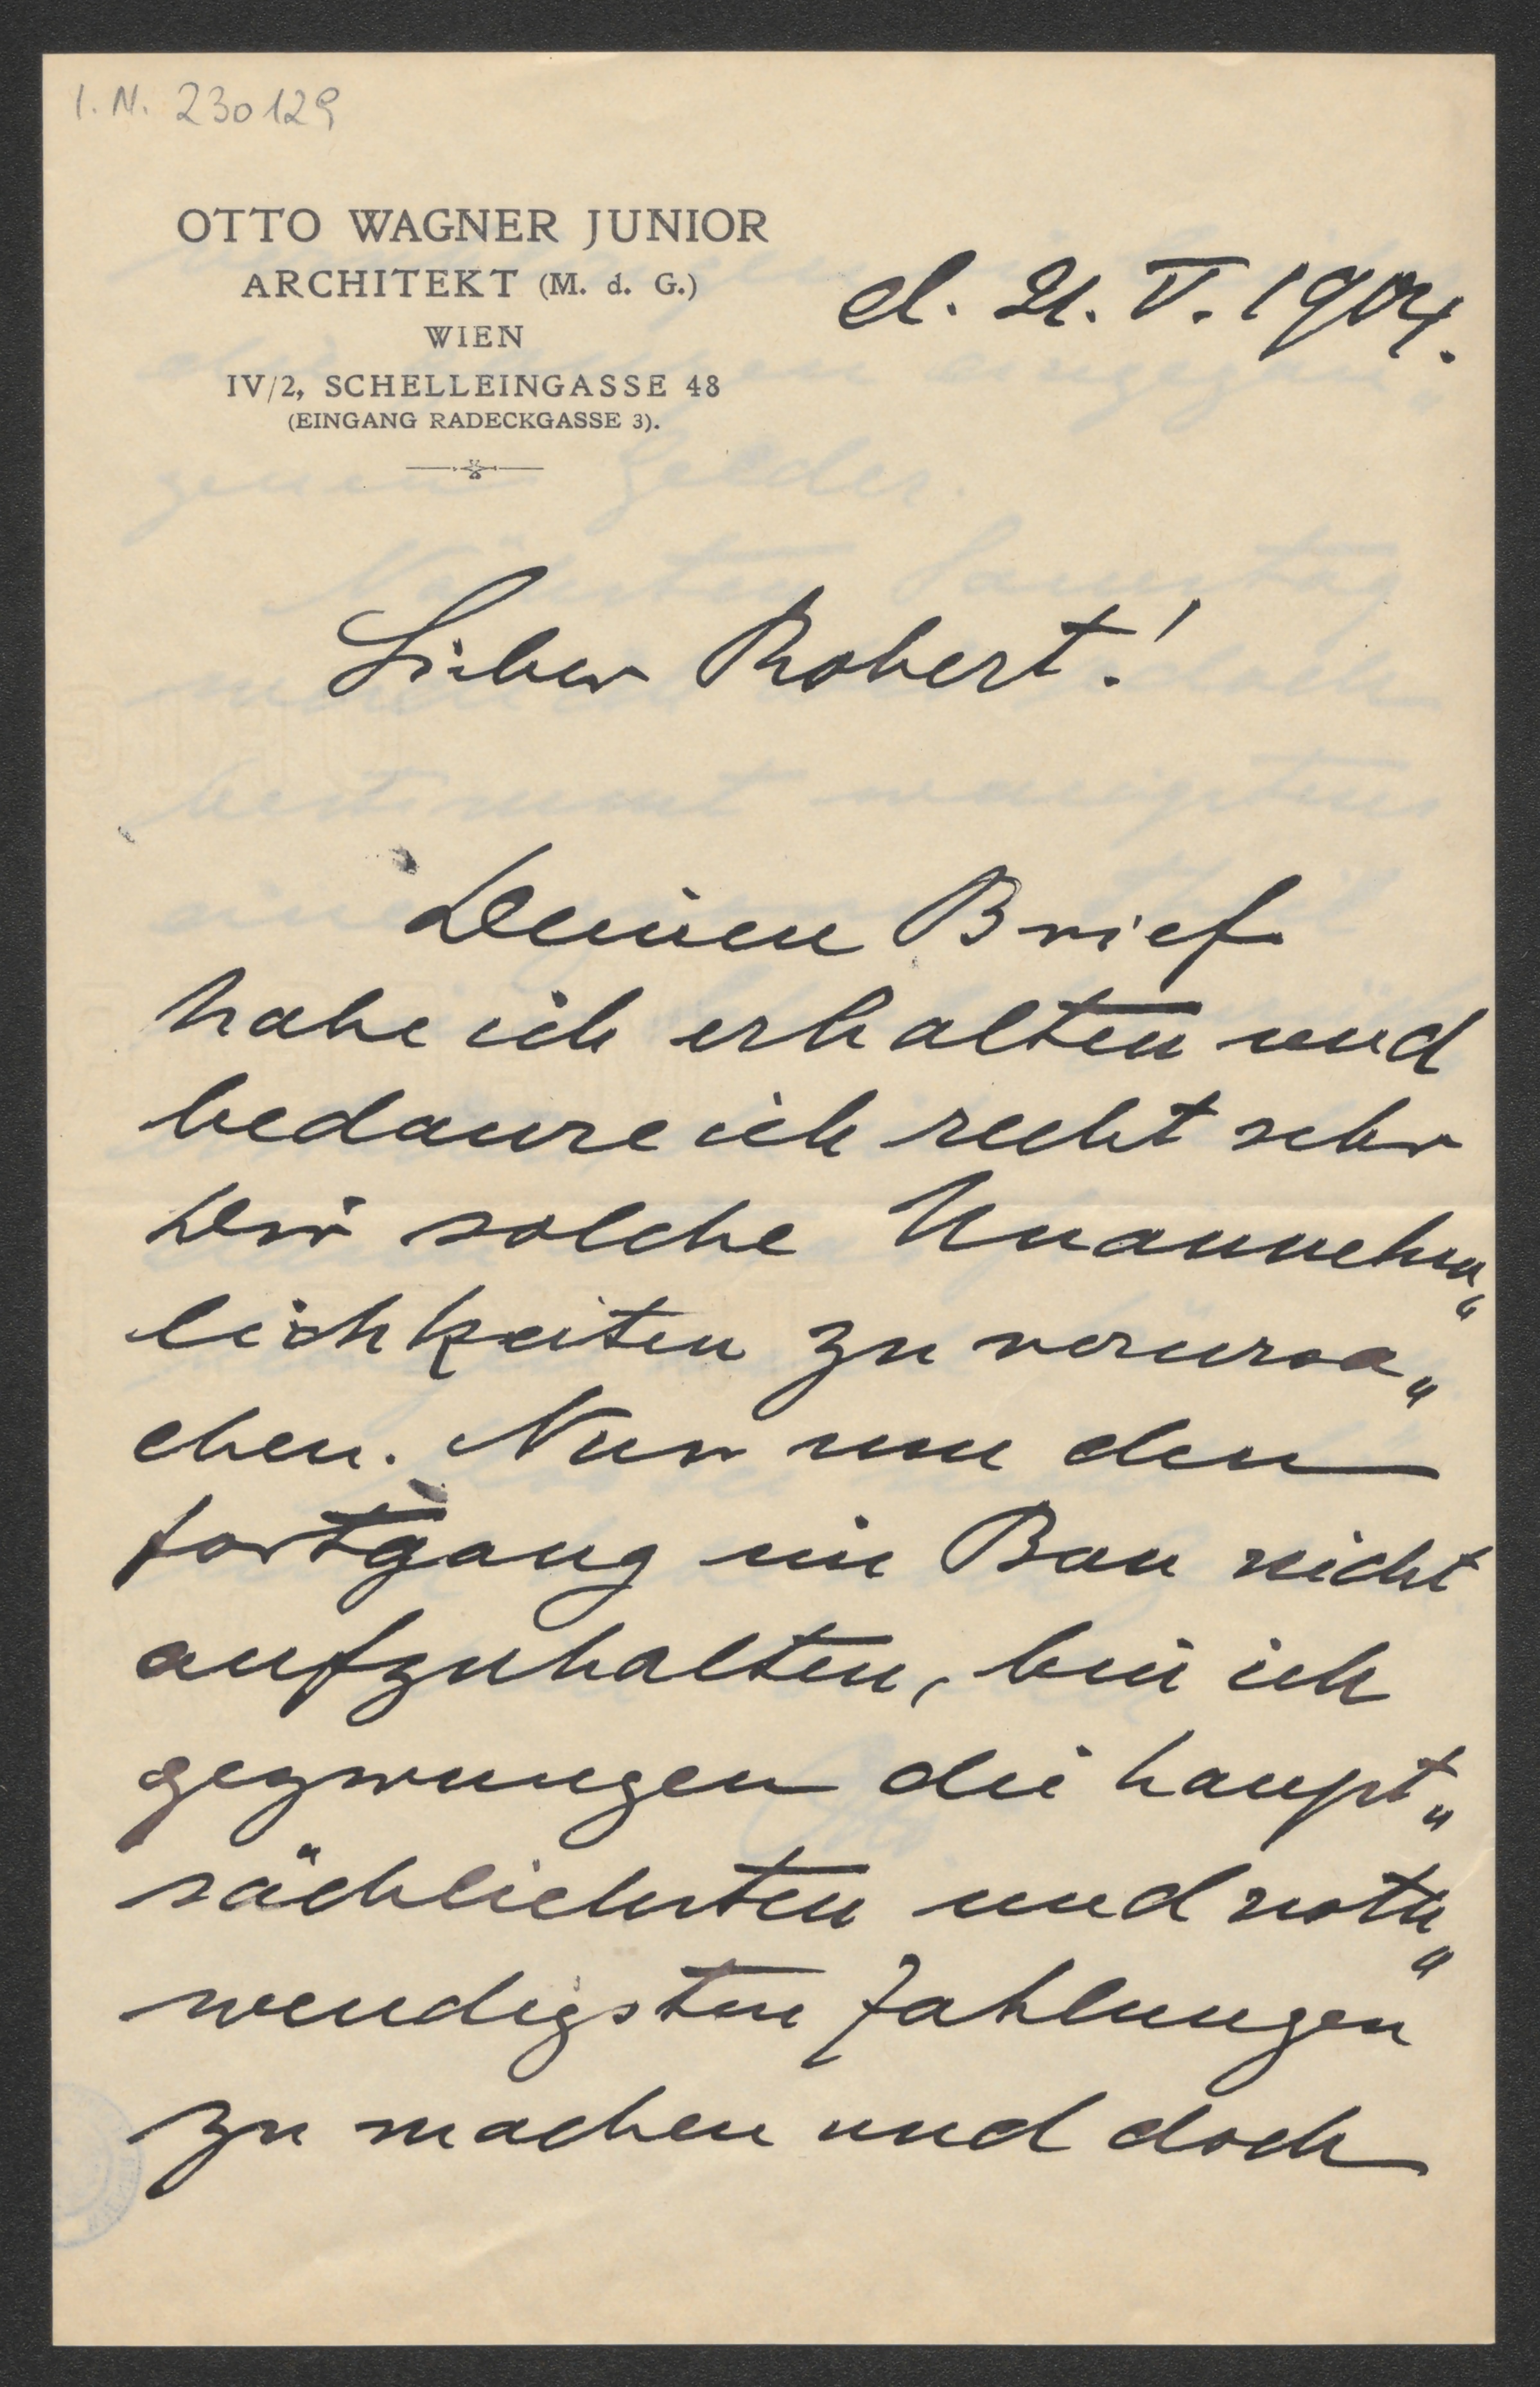 I. N. 230129
OTTO WAGNER JUNIOR
ARCHITEKT (M. d. G.)
WIEN
IV/2, SCHELLEINGASSE 48
(EINGANG RADECKGASSE 3).
d. 21. V. 1904.
Lieber Robert!
Deinen Brief
habe ich erhalten und
bedaure ich recht sehr
Dir solche Unannehm„
lichkeiten zu verursa„
chen. Nur um den
Fortgang im Bau nicht
aufzuhalten, bin ich
gezwungen die haupt„
sächlichsten und noth„
wendigsten Zahlungen
zu machen und doch